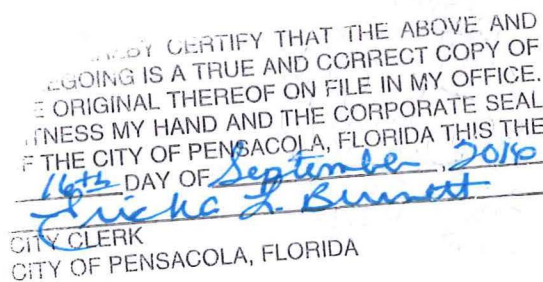 BY CERTIFY THAT THE ABOVE AND
EGOING IS A TRUE AND CORRECT COPY OF
E ORIGINAL THEREOF ON FILE IN MY OFFICE.
TNESS MY HAND AND THE CORPORATE SEAL
F THE CITY OF PENSACOLA, FLORIDA THIS THE
16th DAY OF September, 2016
Ericka L. Burnett
CITY CLERK
CITY OF PENSACOLA, FLORIDA